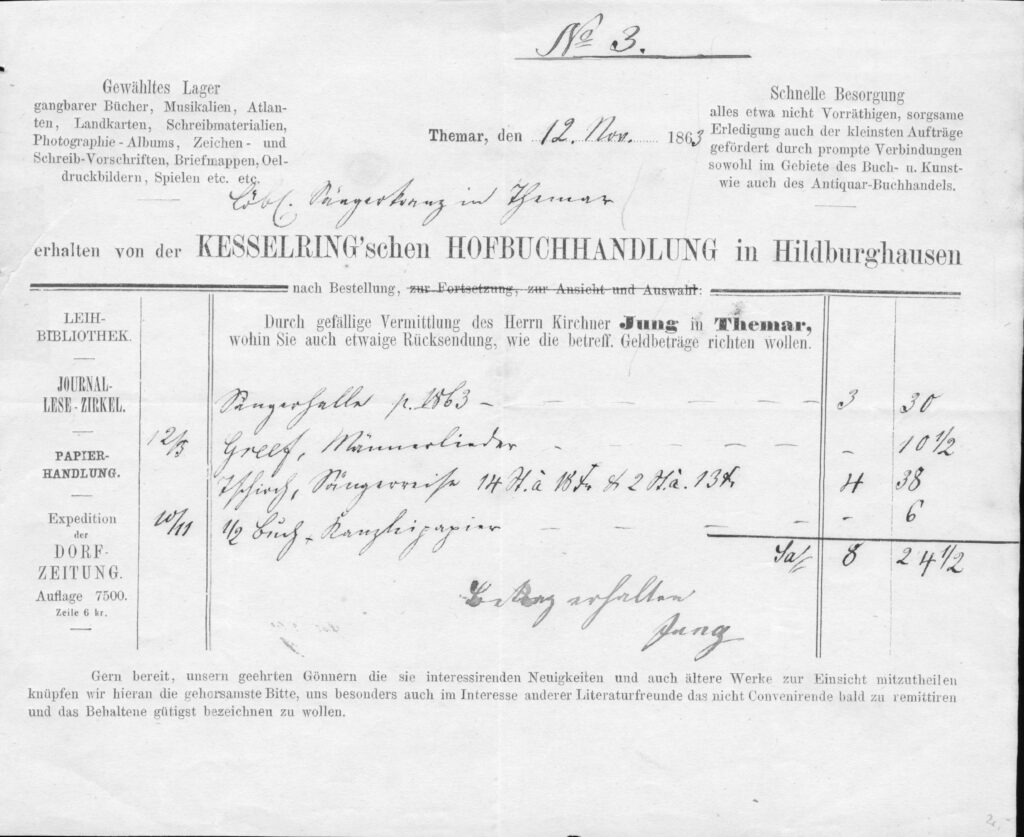 No 3.
Gewähltes Lager
gangbarer Bücher, Musikalien, Atlan-
ten, Landkarten, Schreibmaterialien,
Photographie-Albums, Zeichen- und
Schreib-Vorschriften, Briefmappen, Oel-
druckbildern, Spielen etc. etc.
Themar, den 12. Nov. 1863
Schnelle Besorgung
alles etwa nicht Vorräthigen, sorgsame
Erledigung auch der kleinsten Aufträge
gefördert durch prompte Verbindungen
sowohl im Gebiete des Buch- u. Kunst-
wie auch des Antiquar-Buchhandels.
Löbl. Sängerkranz in Themar
erhalten von der KESSELRING'schen HOFBUCHHANDLUNG in Hildburghausen
nach Bestellung, zur Fortsetzung, zur Ansicht und Auswahl:
Durch gefällige Vermittlung des Herrn Kirchner Jung in Themar,
wohin Sie auch etwaige Rücksendung, wie die betreff. Geldbeträge richten wollen.
LEIH-
BIBLIOTHEK.
JOURNAL-
LESE-ZIRKEL.
PAPIER-
HANDLUNG.
Expedition
der
DORF-
ZEITUNG.
Auflage 7500.
Zeile 6 kr.
Sängerhalle p. 1863 - - - - - 3 30
12/3 Greef, Männerlieder - - - - - 10 1/2
Tschirch, Sängerreise 14 St. à 18 & 2 St. à 13 4 38
10/11 1/2 Buch Kanzleipapier - - - - - 6
Sa 8 24 1/2
Betrag erhalten
Jung
Gern bereit, unsern geehrten Gönnern die sie interessirenden Neuigkeiten und auch ältere Werke zur Einsicht mitzutheilen
knüpfen wir hieran die gehorsamste Bitte, uns besonders auch im Interesse anderer Literaturfreunde das nicht Convenirende bald zu remittiren
und das Behaltene gütigst bezeichnen zu wollen.